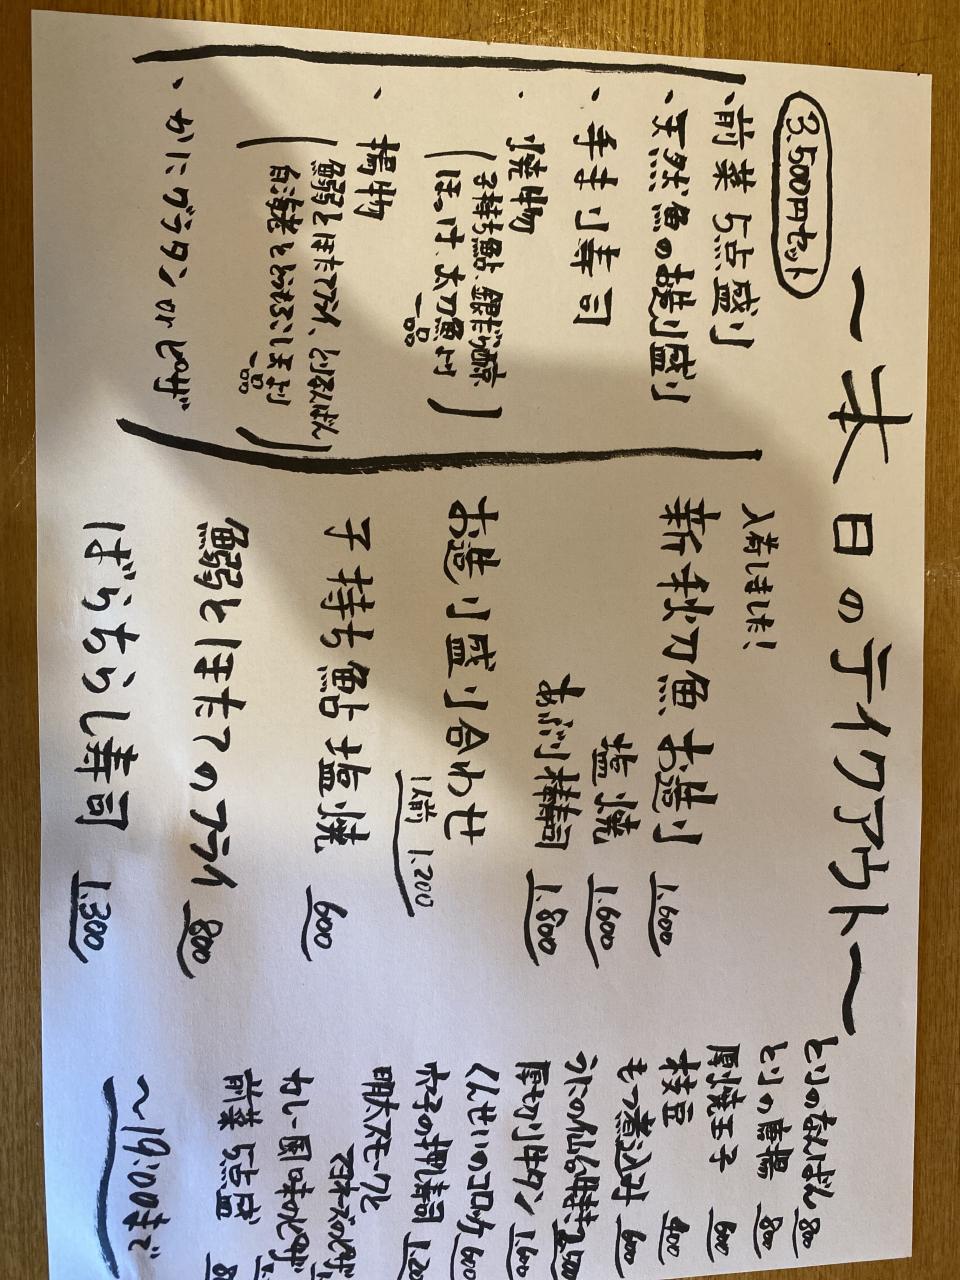 〜本日のテイクアウト〜
3.500円セット
・前菜5点盛り
・天然魚のお造り盛り
・手まり寿司
・焼物
(子持ち鮎、銀だら西京
ほっけ、太刀魚より一品)
・揚物
(鰯とほたてフライ、とりなんばん
白海老とどろぶこしまより一品)
・かにグラタン or ピザ
入荷しました!
新秋刀魚 お造り 1.600
塩焼 1.600
あぶり棒寿司 1.800
お造り盛り合わせ
1人前 1.200
子持ち鮎 塩焼 600
鰯とほたてのフライ 800
ばらちらし寿司 1.300
とりのなんばん 800
とりの唐揚 800
厚焼玉子 600
枝豆 400
もつ煮込み 600
うにの 2.500
厚切り牛タン 1.600
くんせいのコロッケ 600
穴子の押し寿司 1.20
明太スモークと
マヨネーズのピザ
カレー風味のピザ
前菜5点盛 8
〜19:00まで